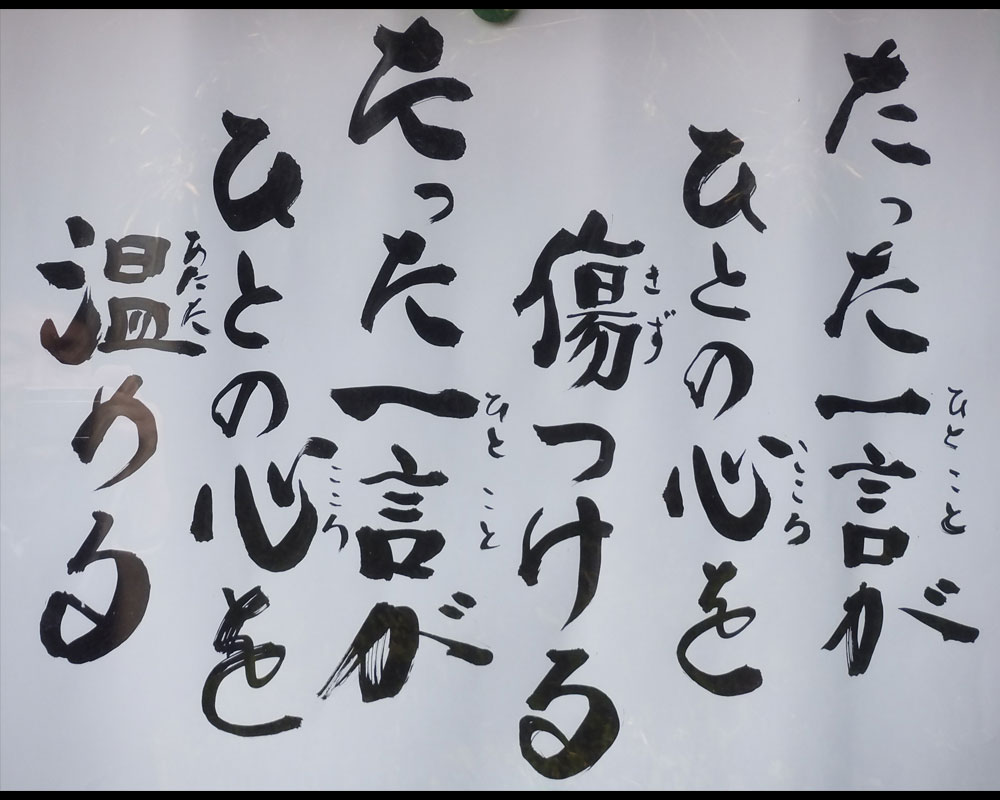 たった一言が
ひとこと
ひとの心を
こころ
傷つける
きず
たった一言が
ひとこと
ひとの心を
こころ
温める
あたた